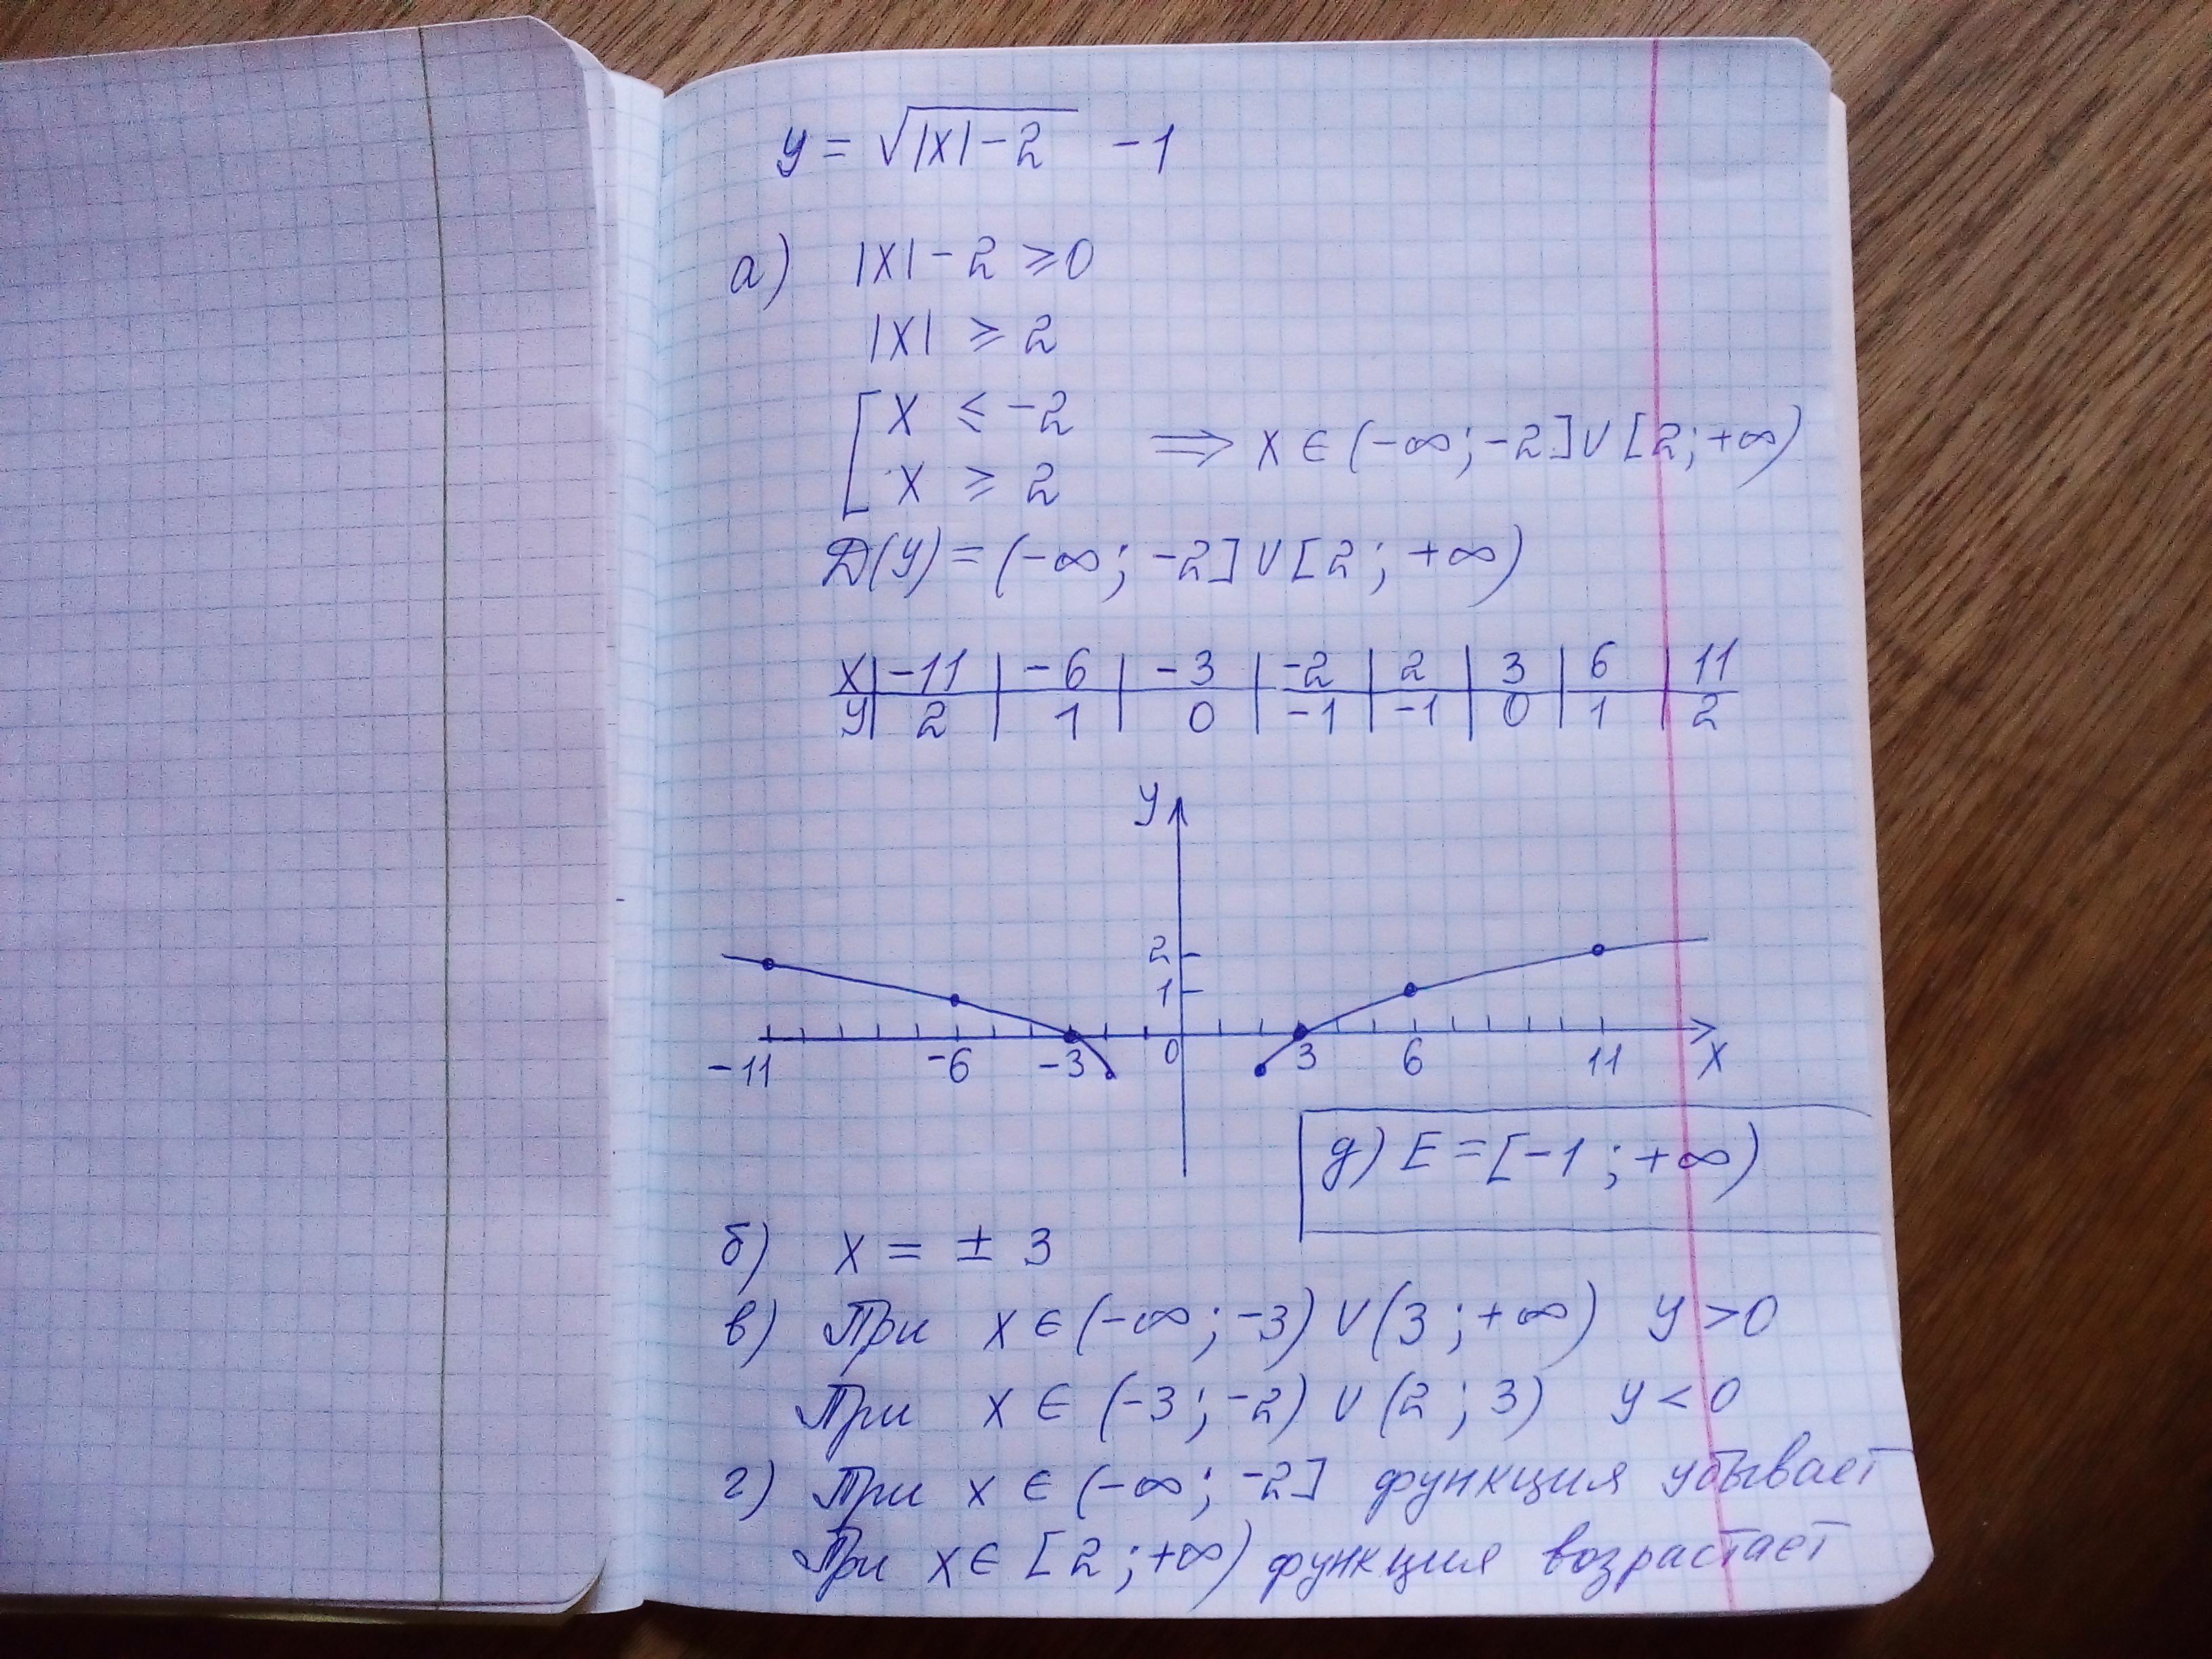 y = √|x|-2 -1
а) |x| - 2 ≥ 0
|x| ≥ 2
[ x ≤ -2
x ≥ 2 ⟹ x ∈ (-∞; -2] ∪ [2; +∞)
D(y) = (-∞; -2] ∪ [2; +∞)
x | -11 | -6 | -3 | -2 | 2 | 3 | 6 | 11
y | 2 | 1 | 0 | -1 | -1 | 0 | 1 | 2
y
2
1
-11 -6 -3 0 3 6 11 x
д) E = [-1; +∞)
б) x = ± 3
в) При x ∈ (-∞; -3) ∪ (3; +∞) y > 0
При x ∈ (-3; -2) ∪ (2; 3) y < 0
г) При x ∈ (-∞; -2] функция убывает
При x ∈ [2; +∞) функция возрастает